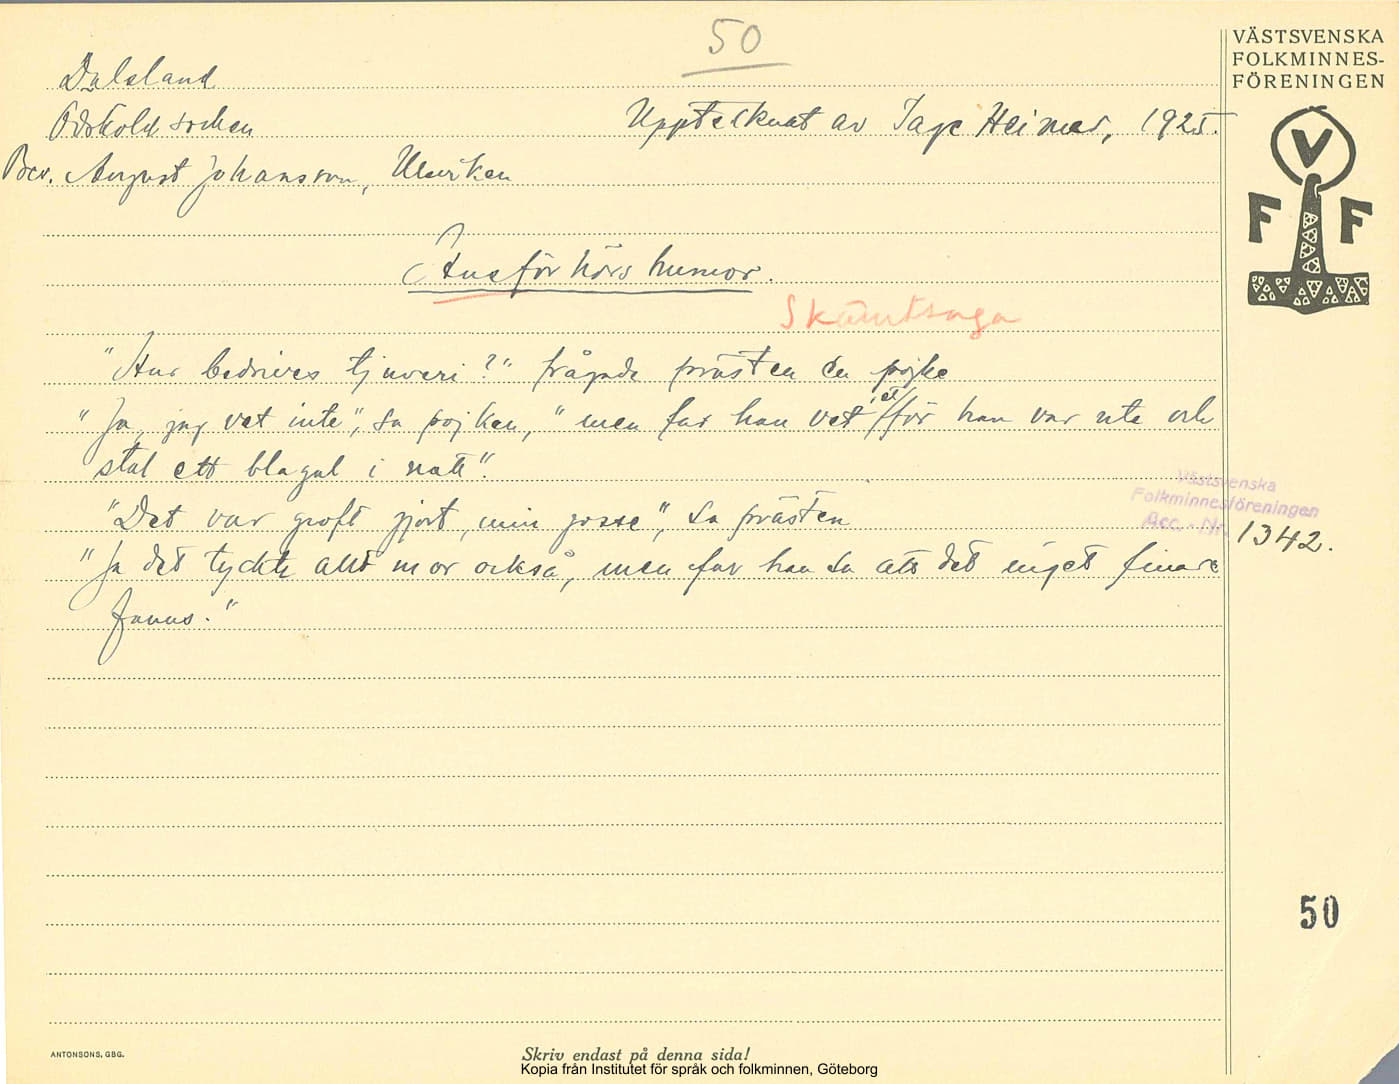 50
VÄSTSVENSKA
FOLKMINNES-
FÖRENINGEN
V
F F
Dalsland
Ödskölds socken
Upptecknat av Tage Heimer, 1925.
Ber. August Johansson, Ulvriken
Husförhörs humor.
Skämtsaga
"Hur bedrives tjuveri?" frågade prästen en pojke
"Ja, jag vet inte", sa pojken, "men far han vet et, för han var ute och
stal ett blagul i natt".
"Det var groft gjort, min gosse", sa prästen
"Ja det tyckte allt mor också, men far han sa att det inget finare
fanns."
Västsvenska
Folkminnesföreningen
Acc. - Nr. 1342.
50
ANTONSONS, GBG.
Skriv endast på denna sida!
Kopia från Institutet för språk och folkminnen, Göteborg